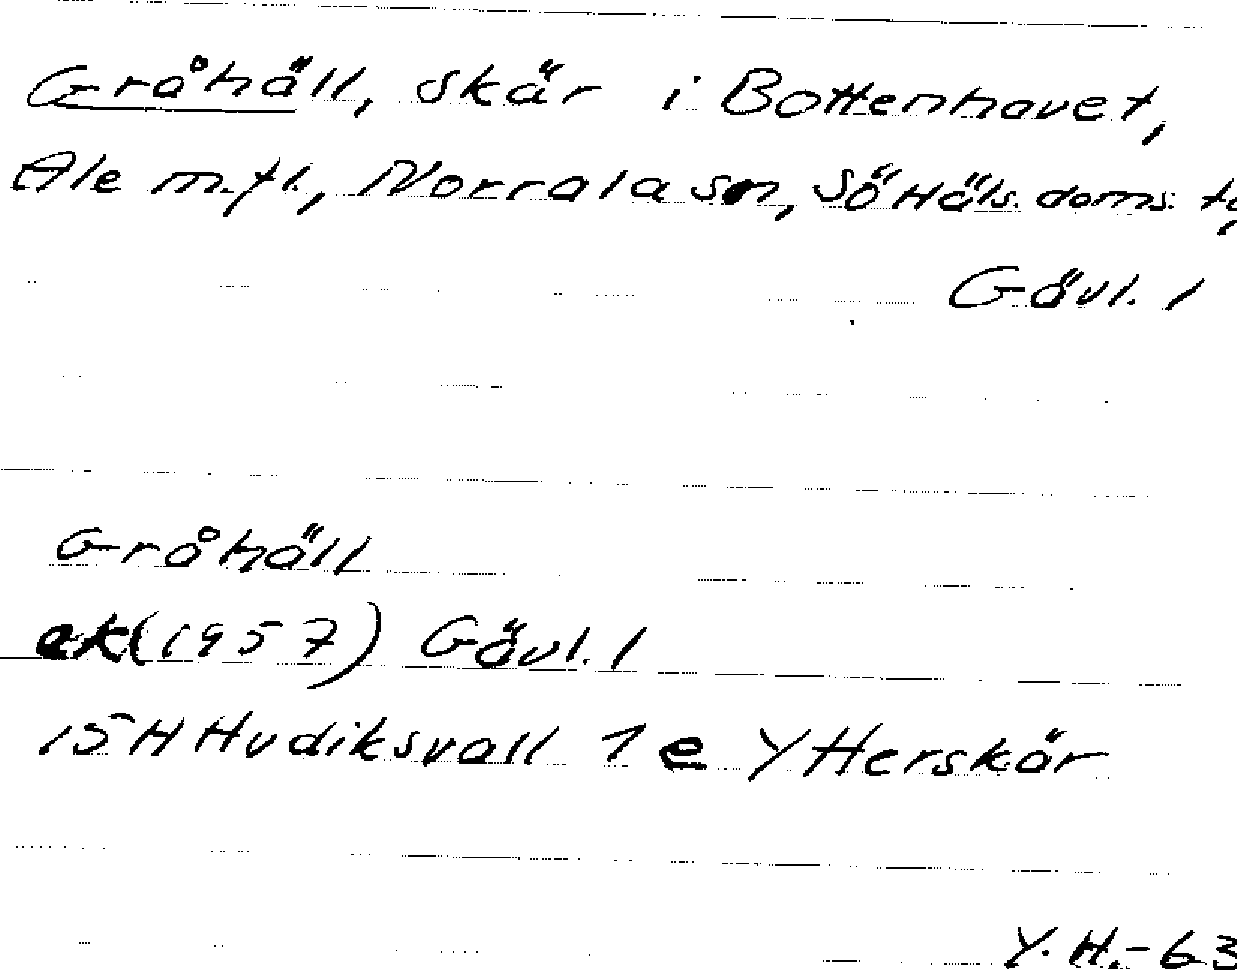 Gråhäll, skär i Bottenhavet,
Ale m.fl., Norrala sn, Sö Häls. doms:
Gävl. l
Gråhäll
ek (1957) Gävl. l
15H Hudiksvall 1e Ytterskär
Y.H.-63